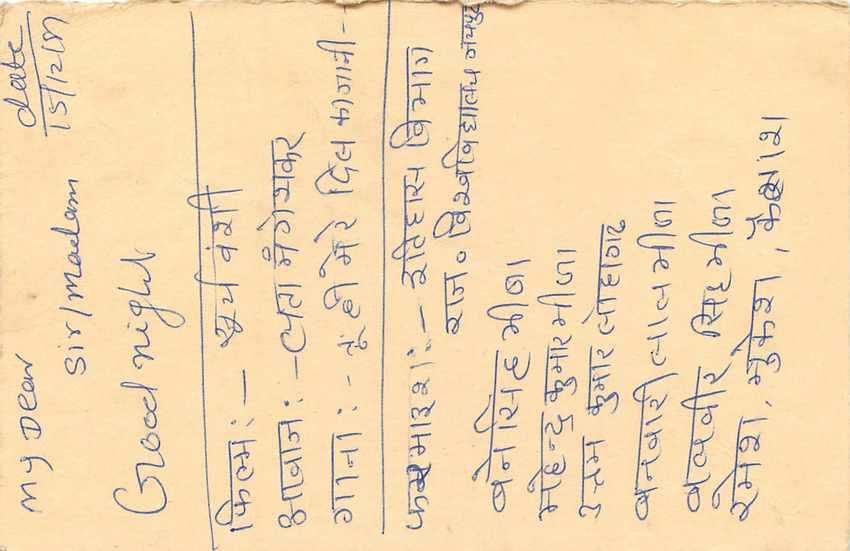 My Dear
date
15/12/81
Sir/madam
Good night
फिल्म :- सूर्य वंशी
आवाज :- लता मंगेशकर
गाना :- तूं ही मेरे दिल
फरमाइश :- इतिहास विभाग
राज० विश्वविद्यालय जयपुर
बेनसिंह मीणा
महेन्द्र कुमार मीणा
उत्तम कुमार
बनवारी लाल मीणा
बलवीर सिंह मीणा
रमेश, मुकेश, कैलाश